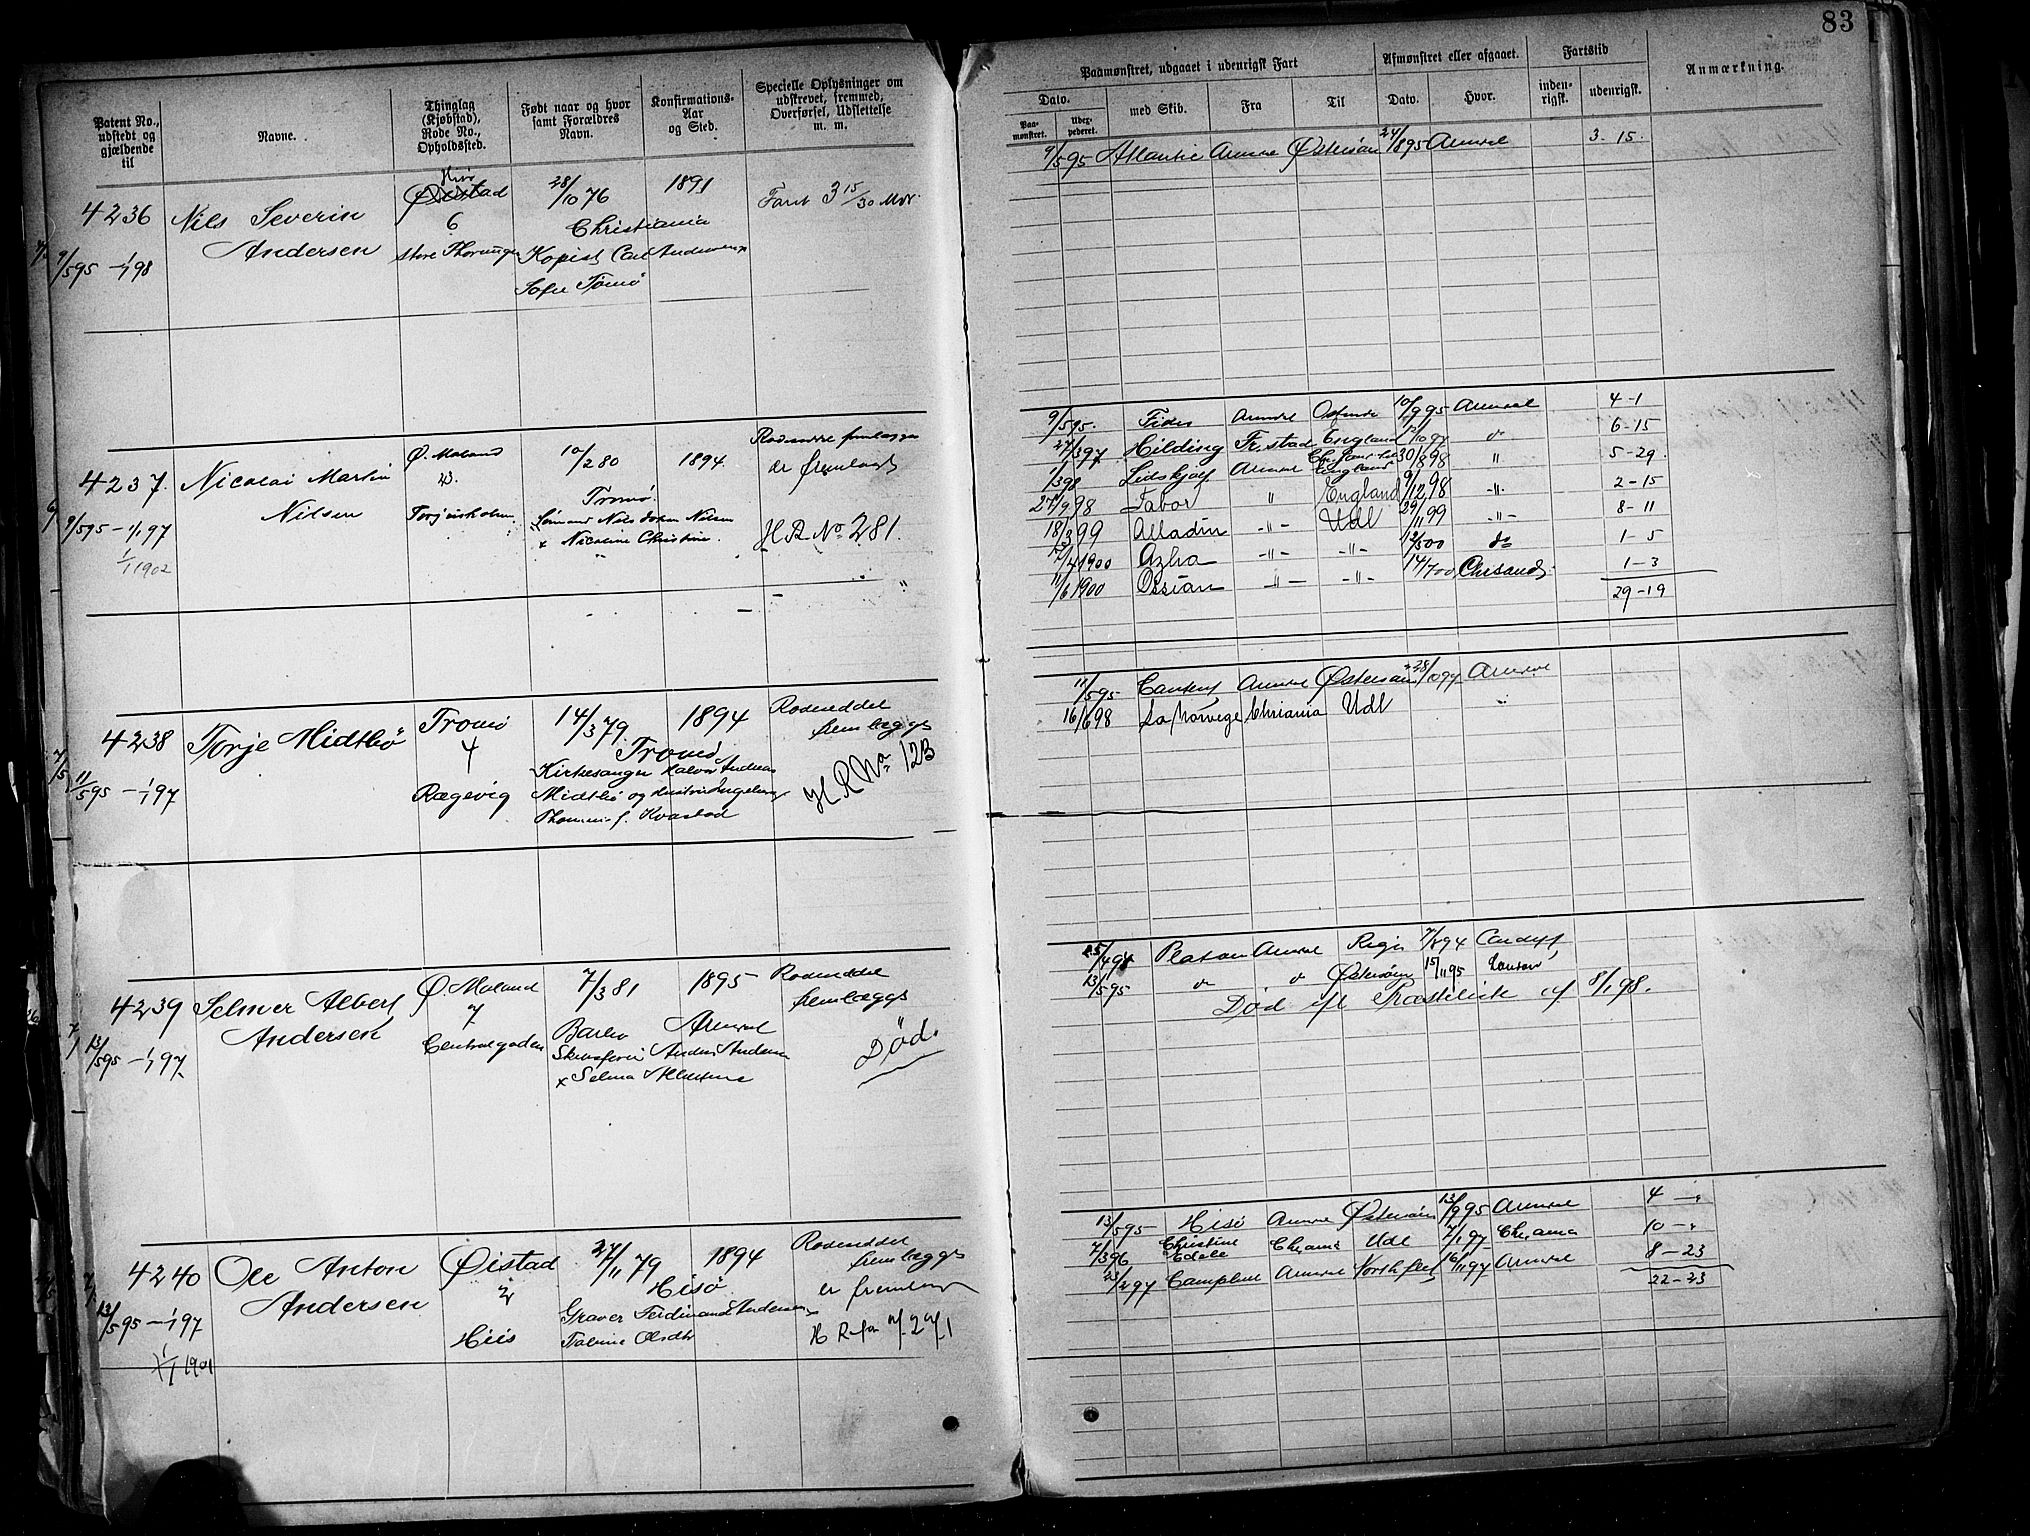 83
Patent No., udstedt og gjældende til
Navne.
Thinglag (Kjøbstad), Rode No., Opholdssted.
Født naar og hvor samt Forældres Navn.
Konfirmations-Aar og Sted.
Specielle Oplysninger om udskrevet, fremmed, Overførsel, Udslettelse m. m.
Paamønstret, udgaaet i udenrigsk Fart
Afmønstret eller afgaaet.
Fartstid
Anmærkning.
Dato.
med Skib.
Fra
Til
Dato.
Hvor.
inden-rigsk.
udenrigsk.
Paa-mønstret.
4236 Nils Severin Andersen
9/5 95 – 1/1 98
Øiestad
6
28/10 76
Christiania
Kopist Carl Andersen
1891
Fart 3 15/30 Mdr.
9/5 95 Atlantic Arendal Østersøen 24/8 95 Arendal 3. 15.
4237. Nicolai Martin Nilsen
9/5 95 – 1/1 97
1/1 1902
Ø. Moland
10/2 80
Tromø.
Nils Johan Nilsen
x Nicoline Christine.
1894.
er fremlagt
H.R. No 281.
9/5 95. Fides Arendal Ostende 10/9 95 Arendal 4 - 1
27/3 97 Hilding Fr.stad England 12/10 97 do 6 - 15
1/3 98 Lidskjalf Arendal England 30/8 98 " 5 - 29
27/9 98 Tabor " England 9/12 98 -"- 2 - 15
18/3 99 Alladin -"- Udl 29/11 99 -"- 8 - 11
12/4 1900 Azha -"- -"- 12/5 00 do 1 - 5
11/6 1900 Ossian -"- -"- 14/7 00 Chrsand. 1 - 3
29 - 19
4238 Torje Midtbø
11/5 95 – 1/1 97
Tromø
4
Rægevig
14/3 79.
Tromø
Kirkesanger Halvor Andreas
Midtbø og Hustru Ingeborg
Kvastad
1894
Rodeseddel
fremlægges
H R No 123
11/5 95 Arendal Østersøen 28/10 97 Arendal
16/6 98 La Norvege Chriania Udl
4239 Selmer Albert Andersen
13/5 95 – 1/1 97
Ø. Moland
7
Centralgaden
7/3 81
Barbo Arendal
Anders Andersen
x Selma Albertine
1895
Rodeseddel
fremlægges
Død.
25/4 94 Platon Arendal Riga 7/8 94 Cardiff
13/5 95 do do Østersøen 15/11 95 London
Død ifl Præsteliste af 8/1 98.
4240 Ole Anton Andersen
13/5 95 – 1/1 97
1/1 1901
Øistad
2
Hiis
27/11 79
Hisø
Graver Ferdinand Andersen
Tabine Olsdtr
1894
Rodeseddel
fremlægges
er fremlagt
13/5 95 Hisø Arendal Østersøen 13/9 95 Arendal 4 –
7/3 96 Christine Edele Chr.ania Udl 7/1 97 Chr.ania 10 –
23/2 97 Arendal Northfleet 16/11 97 Arendal 8 – 23
22 – 23